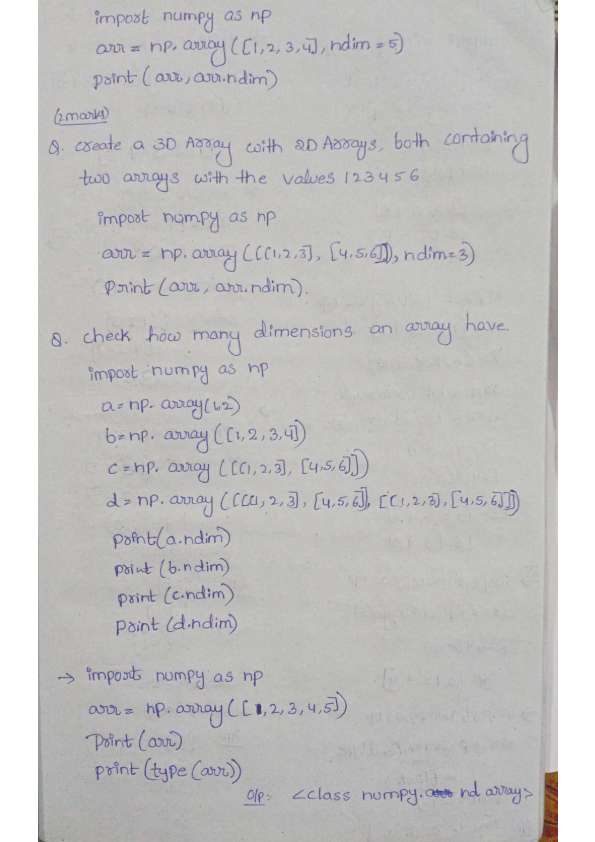 import numpy as np
arr = np.array([1,2,3,4], ndim=5)
print(arr, arr.ndim)
(2marks)
Q. create a 3D Array with 2D Arrays, both containing
two arrays with the values 123456
import numpy as np
arr = np.array([[1,2,3], [4,5,6]]), ndim=3)
Print(arr, arr.ndim).
Q. check how many dimensions an array have.
import numpy as np
a=np.array(1,2)
b=np.array([1,2,3,4])
c=np.array([[1,2,3], [4,5,6]])
d=np.array([[[1,2,3], [4,5,6]], [[1,2,3], [4,5,6]]])
print(a.ndim)
print(b.ndim)
print(c.ndim)
print(d.ndim)
→ import numpy as np
arr = np.array([1,2,3,4,5])
Print(arr)
print(type(arr))
O/p: <class numpy. nd array>